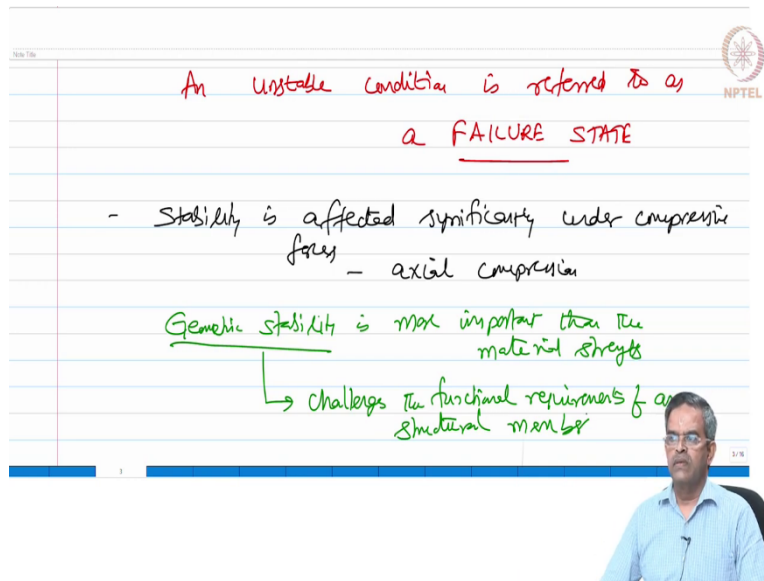 Note Title
NPTEL
An unstable condition is referred to as
a FAILURE STATE
- Stability is affected significantly under compressive
forces
- axial compression
Geometric stability is more important than the
material strength
→ challenges the functional requirements of an
structural member
3
2/16